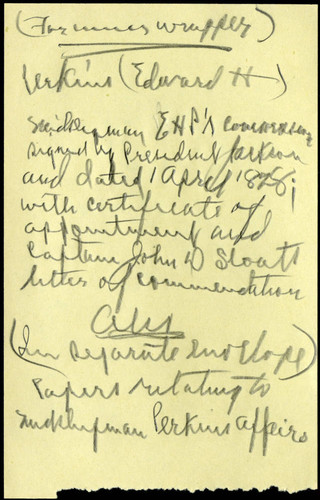 (Former wrapper)
Perkins (Edward H)
Midshipman EHP's commission
signed by President Jackson
and dated 1 April 1828;
with certificate of
appointment and
Captain John D Sloat's
letter of commendation
Also
(In separate envelope)
Papers relating to
Midshipman Perkins affairs